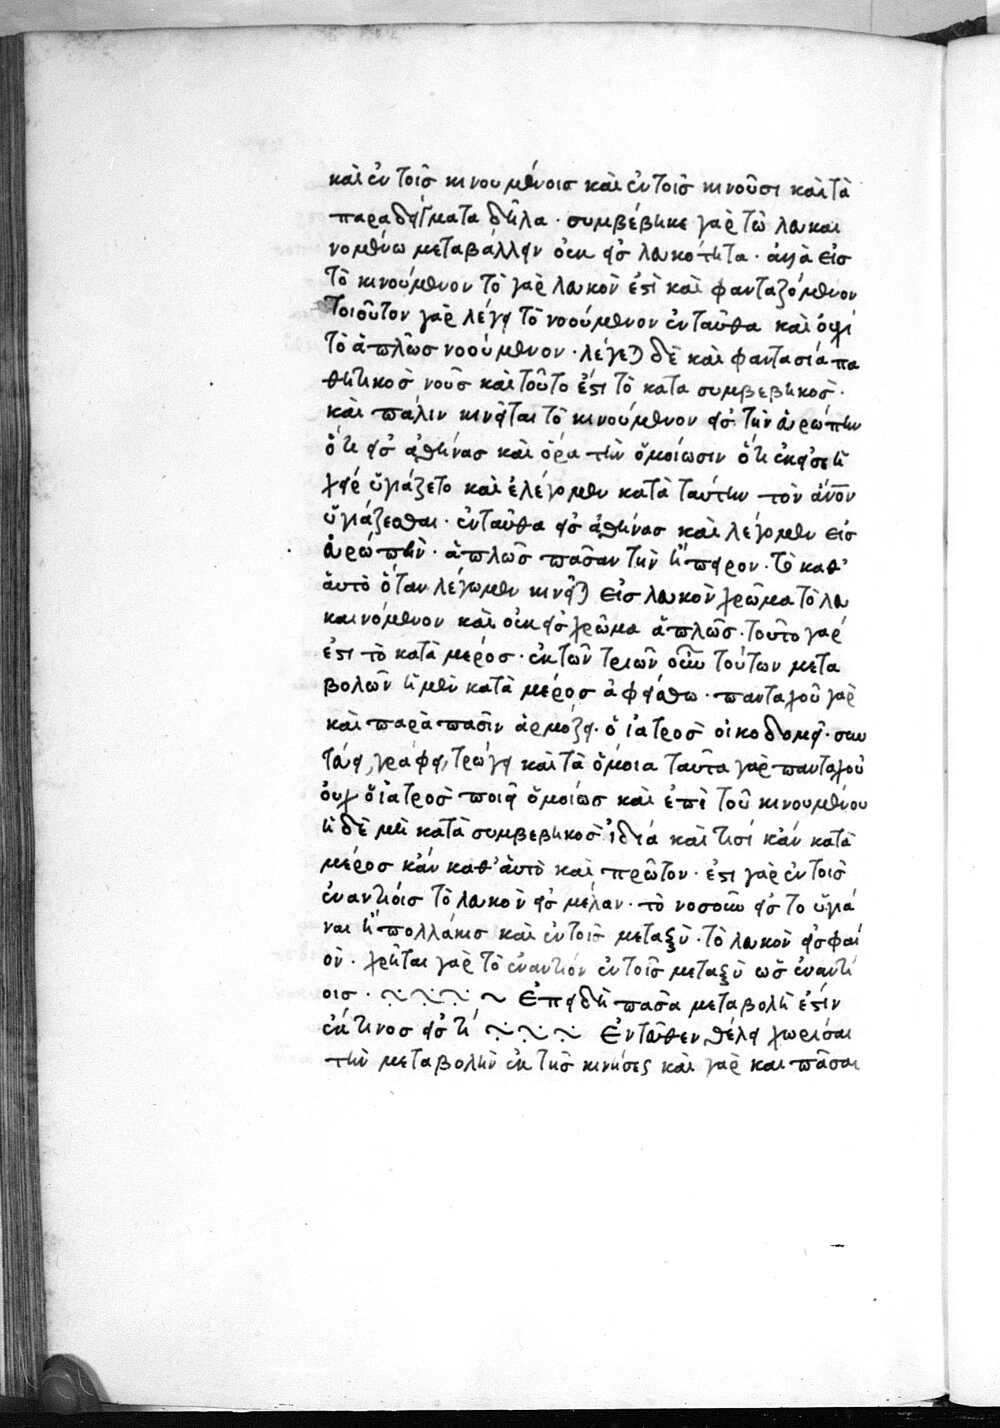 καὶ ἐν τοῖς κινουμένοις καὶ ἐν τοῖς κινοῦσι καὶ τὰ
παραδείγματα δῆλα · συμβέβηκε γὰρ τῶ λευκαι
νομένω μεταβάλλειν οὐκ εἰς λευκότητα · ἀλλὰ εἰς
τὸ κινούμενον τὸ γὰρ λευκὸν ἐστὶ καὶ φανταζόμενον
τοιοῦτον γὰρ λέγει τὸ νοούμενον ἐνταῦθα καὶ ὀχὶ
τὸ ἁπλῶς νοούμενον · λέγεται δὲ καὶ φαντασία πα
θητικὸς νοῦς καὶ τοῦτο ἐστὶ τὸ κατα συμβεβηκὸς ·
καὶ πάλιν κινεῖται τὸ κινούμενον εἰς τὴν ἀυρώπην
ὅτι εἰς ἀθήνας καὶ ὅρα τὴν ὁμοίωσιν ὅτι ἐκεῖσε ἡ
χεὶρ ὑγιάζετο καὶ ἐλέγομεν κατὰ ταύτην τὸν ἄνον
ὑγιάζεσθαι · ἐνταῦθα εἰς ἀθήνας καὶ λέγομεν εἰς
ἀυρώπην · ἁπλῶς πᾶσαν τὴν ἤπειρον · τὸ καθ'
ἁυτὸ ὅταν λέγωμεν κινεῖται εἰς λευκὸν χρῶμα τὸ λευ
καινόμενον καὶ οὐκ εἰς χρῶμα ἁπλῶς · τοῦτο γάρ
ἐστι τὸ κατὰ μέρος · ἐκ τῶν τριῶν οὖν τούτων μετα
βολῶν ἡ μὲν κατὰ μέρος ἀφείσθω · πανταχοῦ γὰρ
καὶ παρὰ πᾶσιν ἁρμόζει · ὁ ἰατρὸς οἰκοδομεῖ · σκυ
τεύει, γράφει, τρώγει καὶ τὰ ὅμοια ταῦτα γὰρ πανταχοῦ
οὐχ ὁ ἰατρὸς ποιεῖ ὁμοίως καὶ ἐπὶ τοῦ κινουμένου
ἡ δὲ μὴ κατὰ συμβεβηκὸς ἰδία καὶ τισί κἀν κατὰ
μέρος κἀν καθ' ἁυτὸ καὶ πρῶτον · ἐστι γὰρ ἐν τοῖς
ἐναντίοις τὸ λευκὸν εἰς μέλαν · τὸ νοσοῦν εἰς το ὑγιά
ναι ἢ πολλάκις καὶ ἐν τοῖς μεταξὺ · τὸ λευκὸν εἰς φαι
ὸν · χρῆται γὰρ τὸ ἐναντίον ἐν τοῖς μεταξὺ ὡς ἐναντί
οις · Ἐπειδὴ πᾶσα μεταβολὴ ἐστίν
ἐκ τινος εἰς τί Ἐντεῦθεν θέλει χωρίσαι
τὴν μεταβολὴν ἐκ τῆς κινήσεως καὶ γὰρ και πᾶσαι